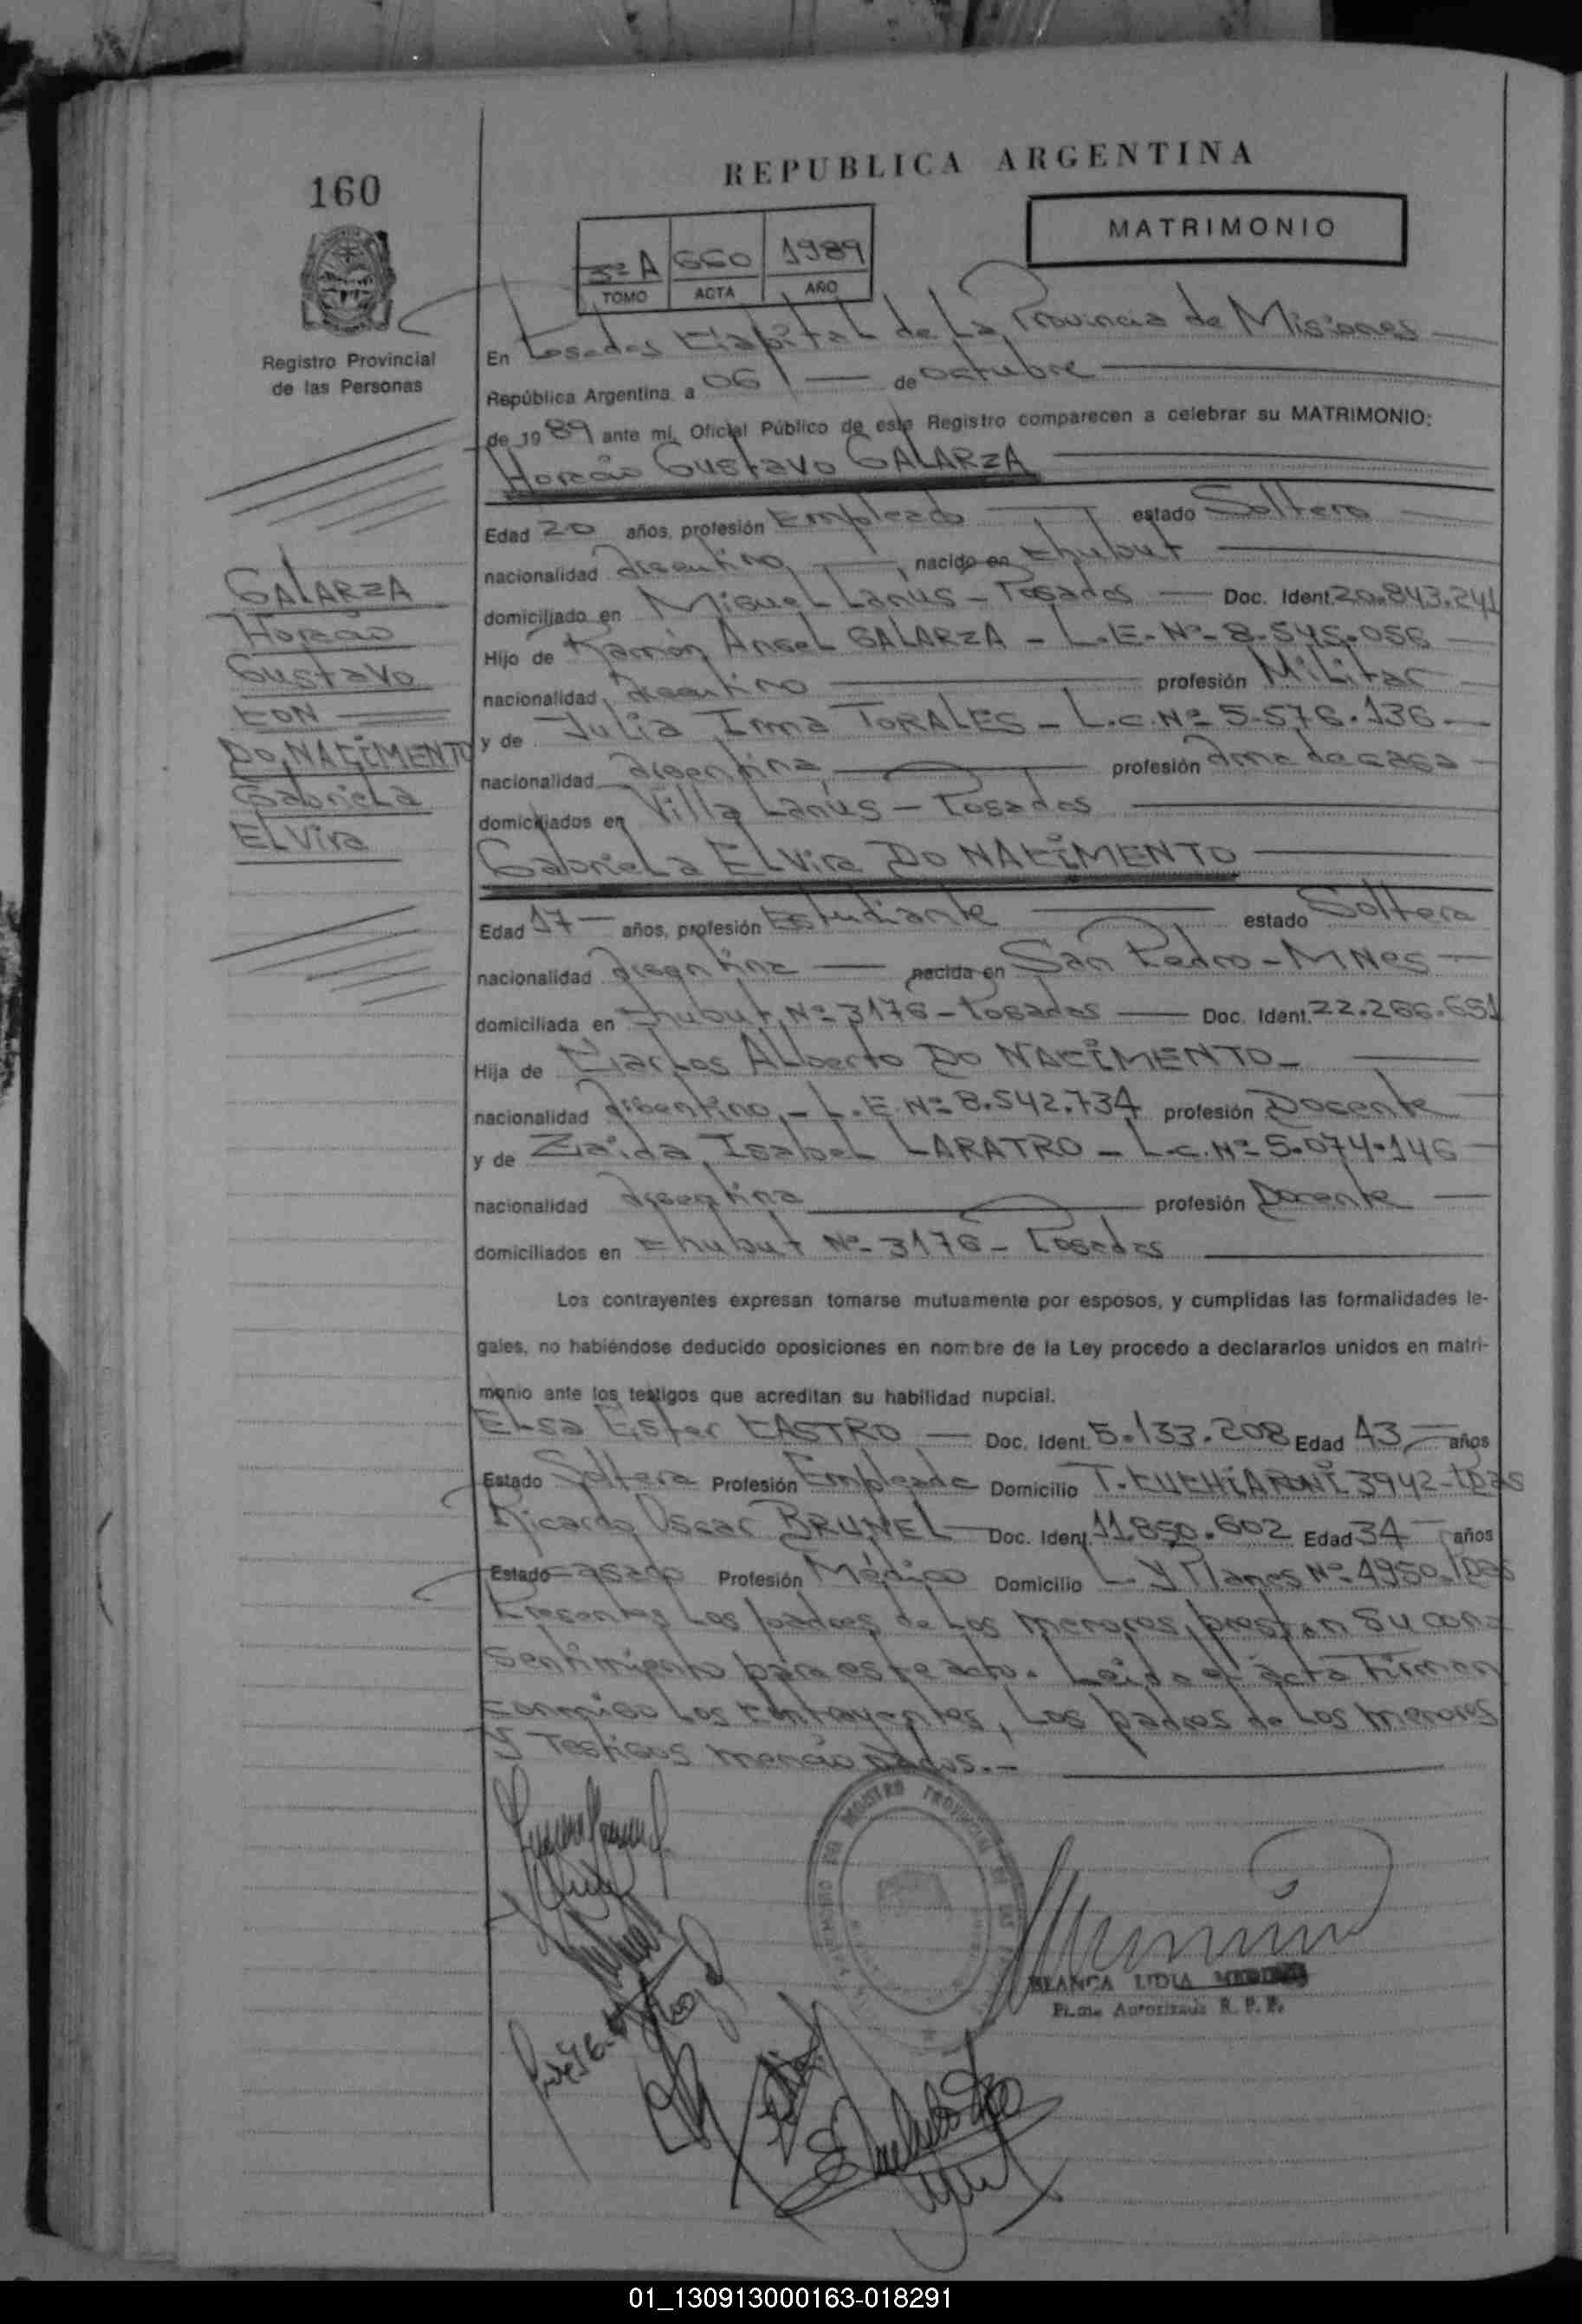 REPUBLICA ARGENTINA
160
MATRIMONIO
3º A 660 1989
TOMO ACTA AÑO
Registro Provincial
de las Personas
En Posadas Capital de La Provincia de Misiones
República Argentina a 06 de octubre
de 1989 ante mí, Oficial Público de este Registro comparecen a celebrar su MATRIMONIO:
Horacio Gustavo GALARZA
Edad 20 años, profesión Empleado estado Soltero
nacionalidad Argentino, nacido en Chubut
domiciliado en Miguel Lanús - Posadas Doc. Ident. 20.843.241
Hijo de Ramón Angel GALARZA - L.E. Nº 8.545.056
nacionalidad Argentino profesión Militar
y de Julia Irma TORALES - L.C. Nº 5.576.136
nacionalidad Argentina profesión Ama de casa
domiciliados en Villa Lanús - Posadas
Gabriela Elvira DO NACIMENTO
GALARZA
Horacio
Gustavo
CON
DO NACIMENTO
Gabriela
Elvira
Edad 17 años, profesión Estudiante estado Soltera
nacionalidad Argentina nacida en San Pedro - MNES
domiciliada en Chubut Nº 3176 - Posadas Doc. Ident. 22.266.651
Hija de Carlos Alberto DO NACIMENTO -
nacionalidad Argentino - L.E. Nº 8.542.734 profesión Docente
y de Zaida Isabel LARATRO - L.C. Nº 5.074.146
nacionalidad Argentina profesión Docente
domiciliados en Chubut Nº 3176 - Posadas
Los contrayentes expresan tomarse mutuamente por esposos, y cumplidas las formalidades le-
gales, no habiéndose deducido oposiciones en nombre de la Ley procedo a declararlos unidos en matri-
monio ante los testigos que acreditan su habilidad nupcial.
Elsa Ester CASTRO Doc. Ident. 5.133.208 Edad 43 años
Estado Soltera Profesión Empleada Domicilio 3942 - Pdas
Ricardo Oscar BRUNEL Doc. Ident. 11.850.602 Edad 34 años
Estado Casado Profesión Médico Domicilio L. y Planes Nº 4950 Pdas
Presentes Los padres de Los menores, prestan su con-
sentimiento para este acto. Leida el acta Firman
conmigo Los contrayentes, Los padres de Los menores
y Testigos mencionados.-
BLANCA LIDIA
Firma Autorizada R. P. P.
01_130913000163-018291